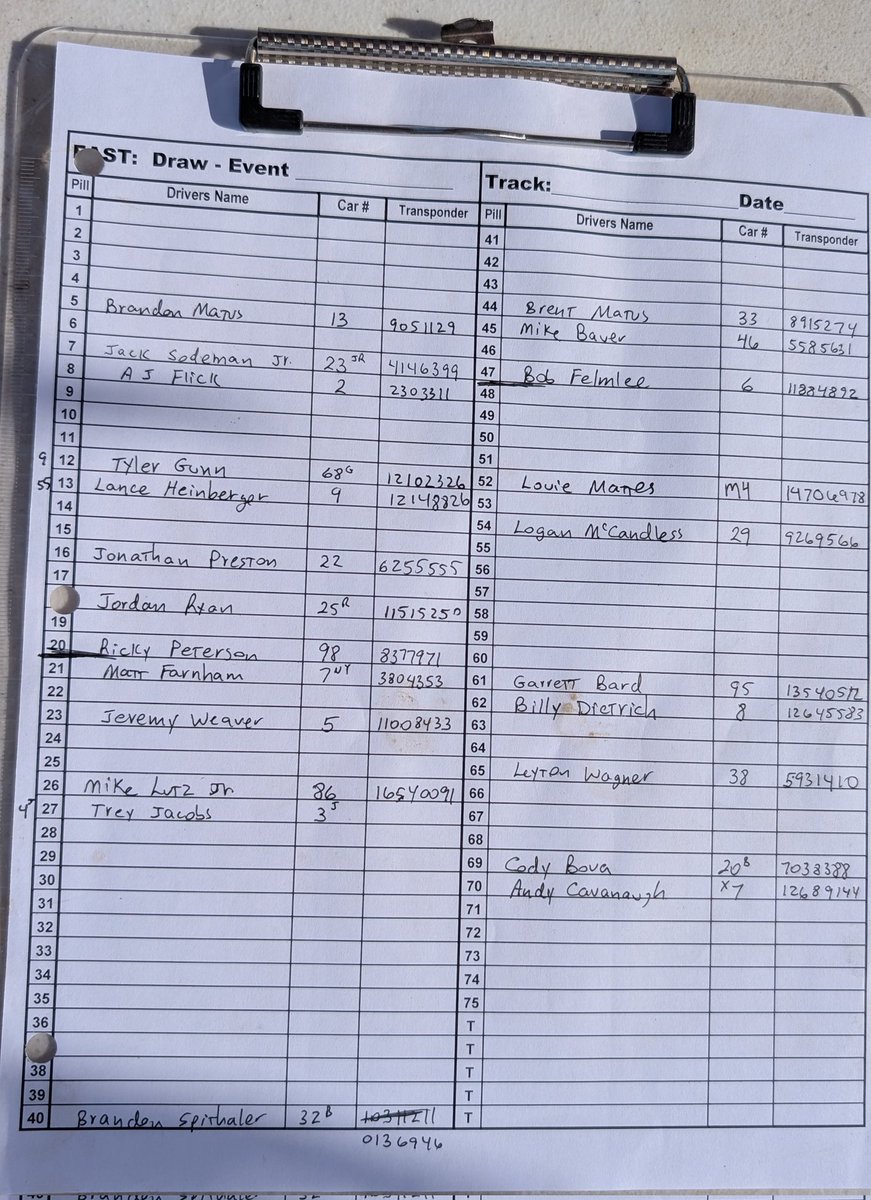 Draw - Event
Pill Drivers Name Car # Transponder
1
2
3
4
5 Brandon Matus 13 9051129
6
7 Jack Sodeman Jr. 23 JR 4146399
8 A J Flick 2 2303311
9
10
11
9 12 Tyler Gunn 68G 12102326
55 13 Lance Heinberger 9 12148826
14
15
16 Jonathan Preston 22 6255555
17
Jordan Ryan 25R 11515250
19
20 Ricky Peterson 98 8377971
21 Matt Farnham 7NY 3804353
22
23 Jeremy Weaver 5 11008433
24
25
26 Mike Lutz Jr 86 16540091
4J 27 Trey Jacobs 3J
28
29
30
31
32
33
34
35
36
38
39
40 Brandon Spithaler 32B 10311211
0136946
Track: Date
Pill Drivers Name Car # Transponder
41
42
43
44 Brent Matus 33 8915274
45 Mike Bauer 46 5585631
46
47 Bob Felmlee 6 11884892
48
49
50
51
52 Louie Mattes M4 14706978
53
54 Logan McCandless 29 9269566
55
56
57
58
59
60
61 Garrett Bard 95 13540512
62 Billy Dietrich 8 12645583
63
64
65 Leyton Wagner 38 5931410
66
67
68
69 Cody Bova 20B 7038388
70 Andy Cavanaugh X7 12689144
71
72
73
74
75
T
T
T
T
T